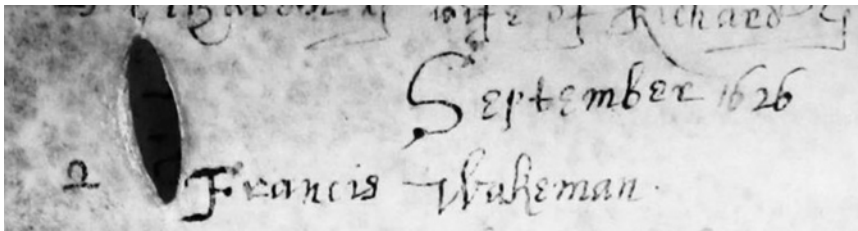 Elizabeth wife of Richard
September 1626
2 Francis Wakeman